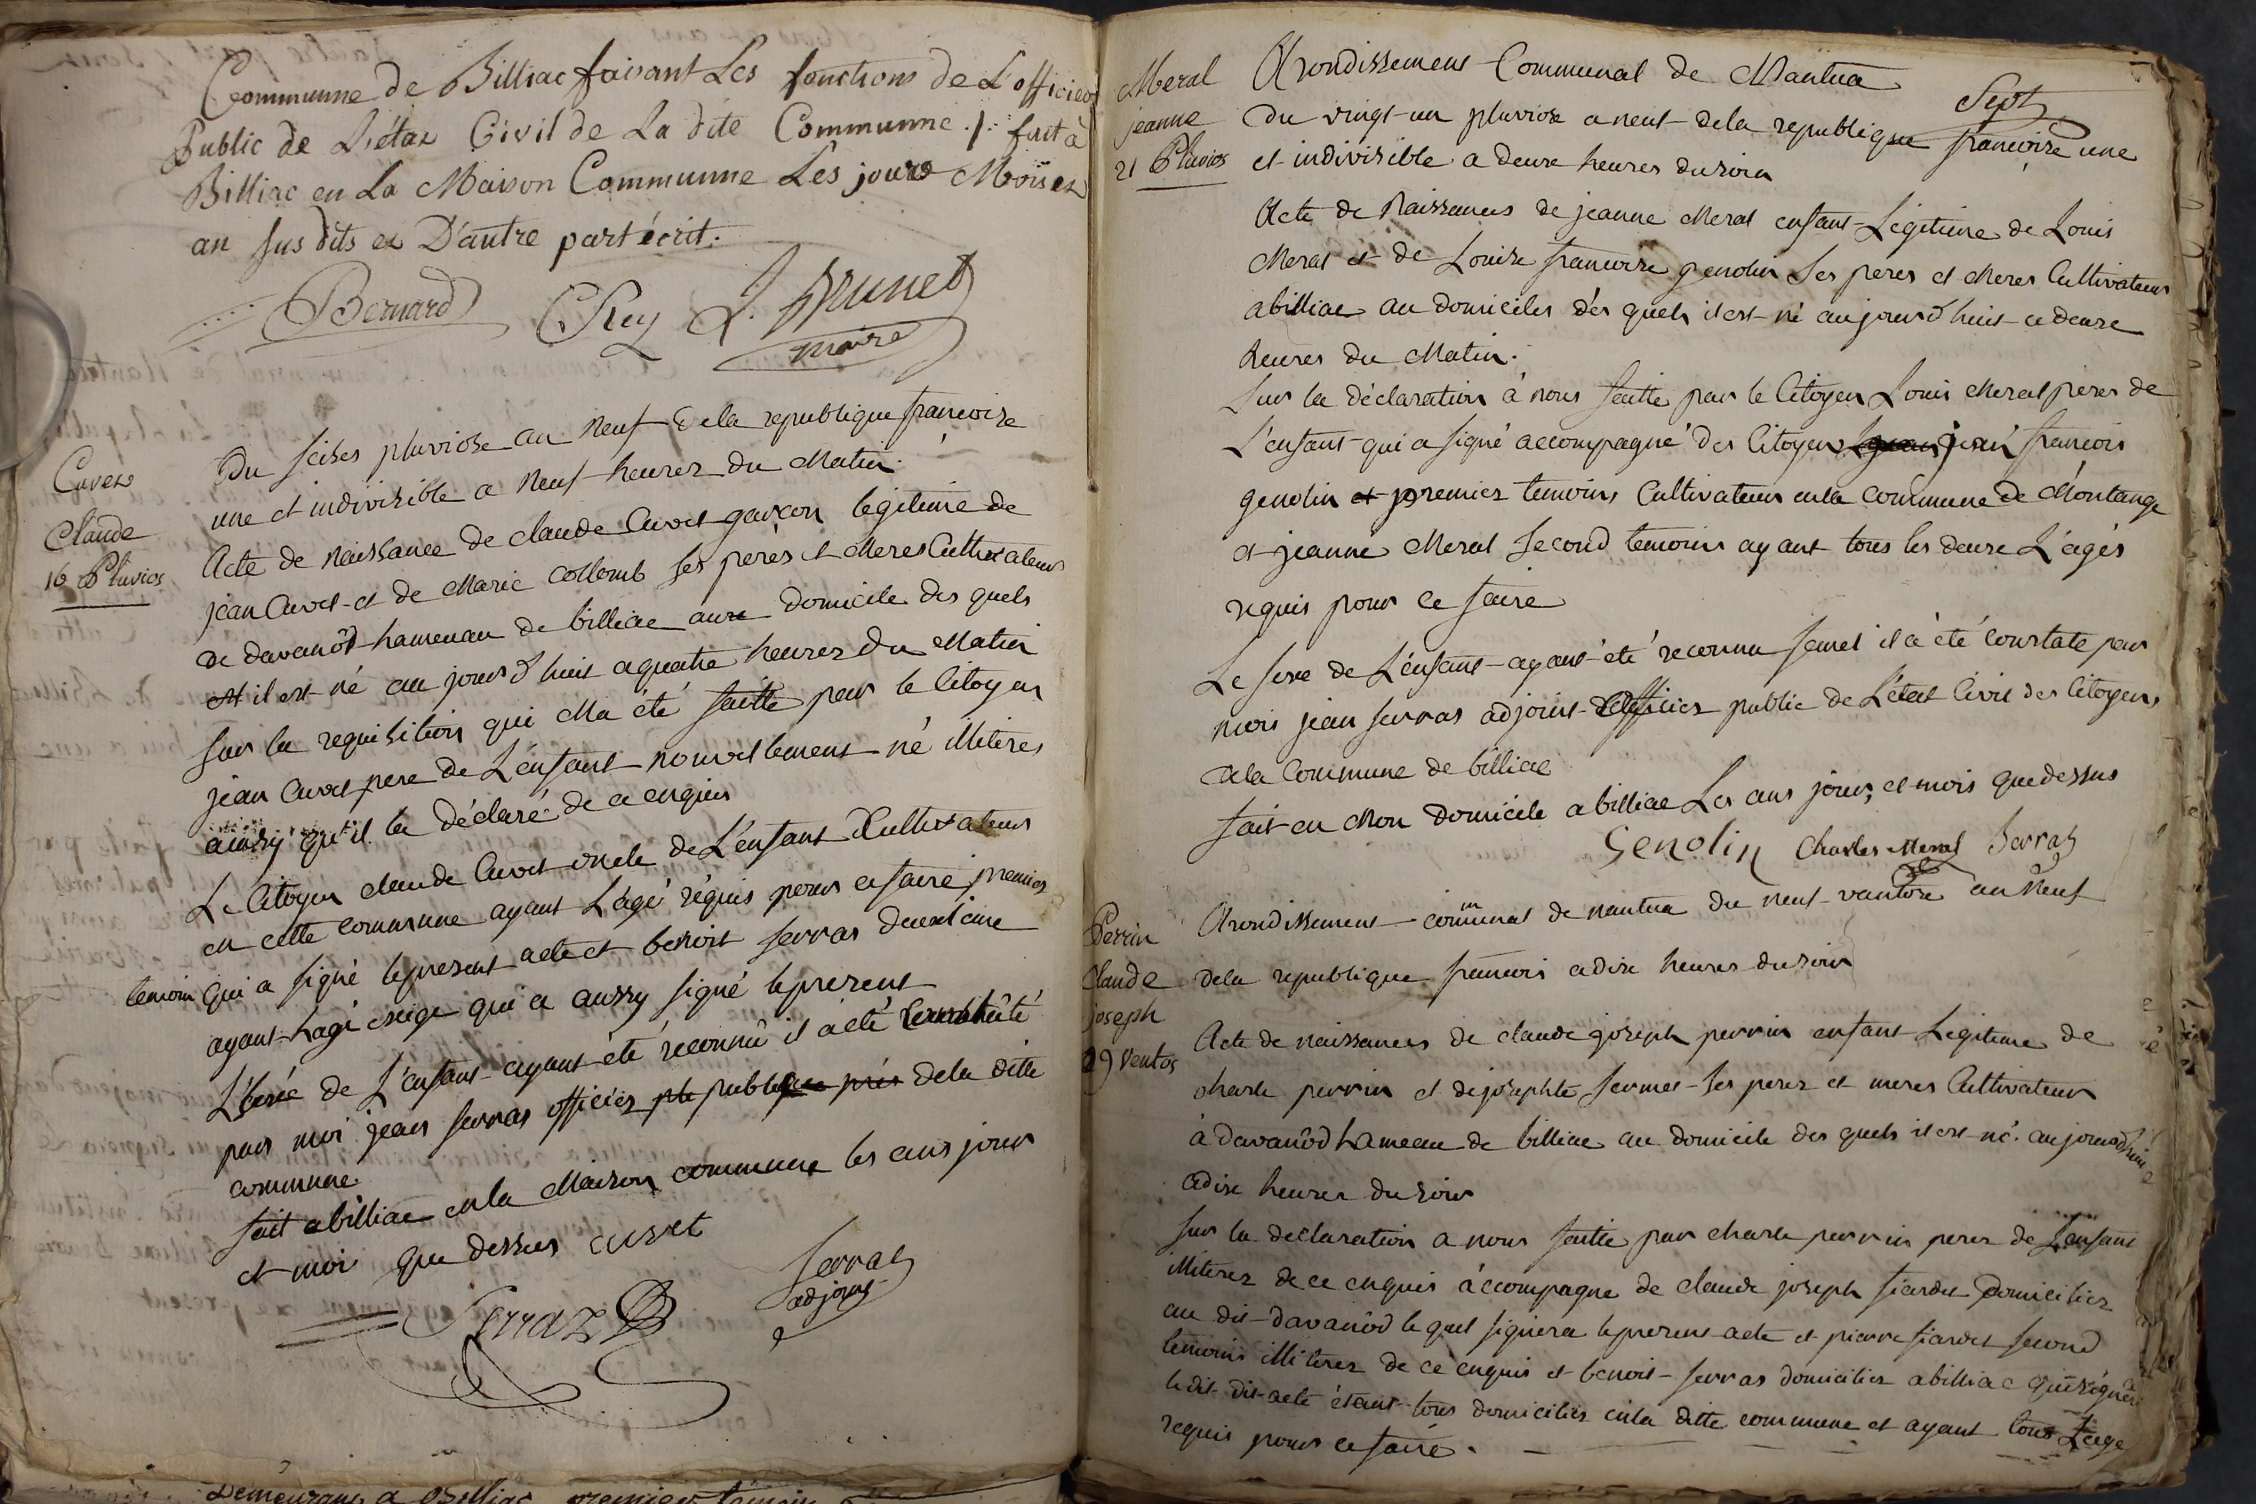 Communne de Billiac faisant Les fonctions de L'officier
Public de L'état Civil de La dite Communne ./. fait à
Billiac en La Maison Communne Les jours Moïs et
an sus dits et D'autre part écrit.
Bernard CRey J. Brunet
maire
Cuvet
Claude
16 Pluvios
Du seizes pluviose an neuf dela republique francoise
une et indivizible a neuf heures du Matin.
Acte de naissance de claude Cuvet garcon legitime de
jean Cuvet et de Marie Collomb ses perès et Meres Cultivateurs
de davanôd hameau de billiac aux domicile des quels
il est né au jourd'huit a quatre heures du Matin
sur la requisition qui Ma été faitte par le Citoyen
jean Cuvet pere de L'enfant nouvellement né illiteres
ainsy qu'il la déclaré de ce enquis
Le Citoyen claude Cuvet oncle de L'enfant Cultivateurs
en cette commune ayant L'agé réquis pour ce faire premier
temoin qui a signé le present acte et benoit serras deuxieme
ayant lagé exige qui a aussy signé le present
L'sexe de L'enfant ayant été réconnu il a été constaté
par moi jean serras officier publique dela ditte
commune
fait a billiac en la Maison commune les ans jour
et moi que dessus cuvet
Serraz
Serras
adjoint
Meral
jeanne
21 Pluvios
Arondissement Communal de Mantua
Sept
Du vingt un pluviose a neuf dela republique francoise une
et indivizible a deux heures du soir
Acte de Naissances de jeanne Meral enfant Légitime de Louis
Meral et de Louise francoise genolin ses peres et Meres Cultivateurs
abilliac au domiciles dès quels il est né aujourd'huit a deuxe
heures du Matin.
Sur la déclaration à nous faitte par le Citoyen Louis Meral pères de
L'enfant qui a signé accompagné des Citoyens jean francois
genolin et premier temoins Cultivateur en la commune de Montange
et jeanne Meral second temoins ayant tous les deuxe L'agés
requis pour ce faire
Le sexe de L'enfant ayant été reconnu femel il a été constate par
mois jean serras adjoint officier public de L'état Civil des Citoyens
de la Commune de billiac
fait en Mon domicile abilliac Les ans jour, et mois que dessus
Genolin Charles Meral Serras
Perrin
Claude
joseph
29 ventos
Arondissement communal de nantua du neuf vantose an neuf
dela republique francois a dix heures du soir
Acte de naissances de claude joseph perrin enfant Legitime de
charle perrin et de josephte sermet ses peres et meres Cultivateur
à davanôd hameau de billiac au domicile des quels il est né aujourdhui
a dix heures du soir
Sur la declaration a nous faitte par charle perrin peres de L'enfant
illiteres de ce enquis accompagne de claude joseph siardet domicilier
au dit davanôd le quel signera le present acte et pierre siardet second
temoins illiteres de ce enquis et benoit serras domicilier abilliac qui signera
le dit dit acte étant tous domicilies en la ditte commune et ayant tous L'age
requis pour ce faire.
Demeurant a Billiac premier témoin